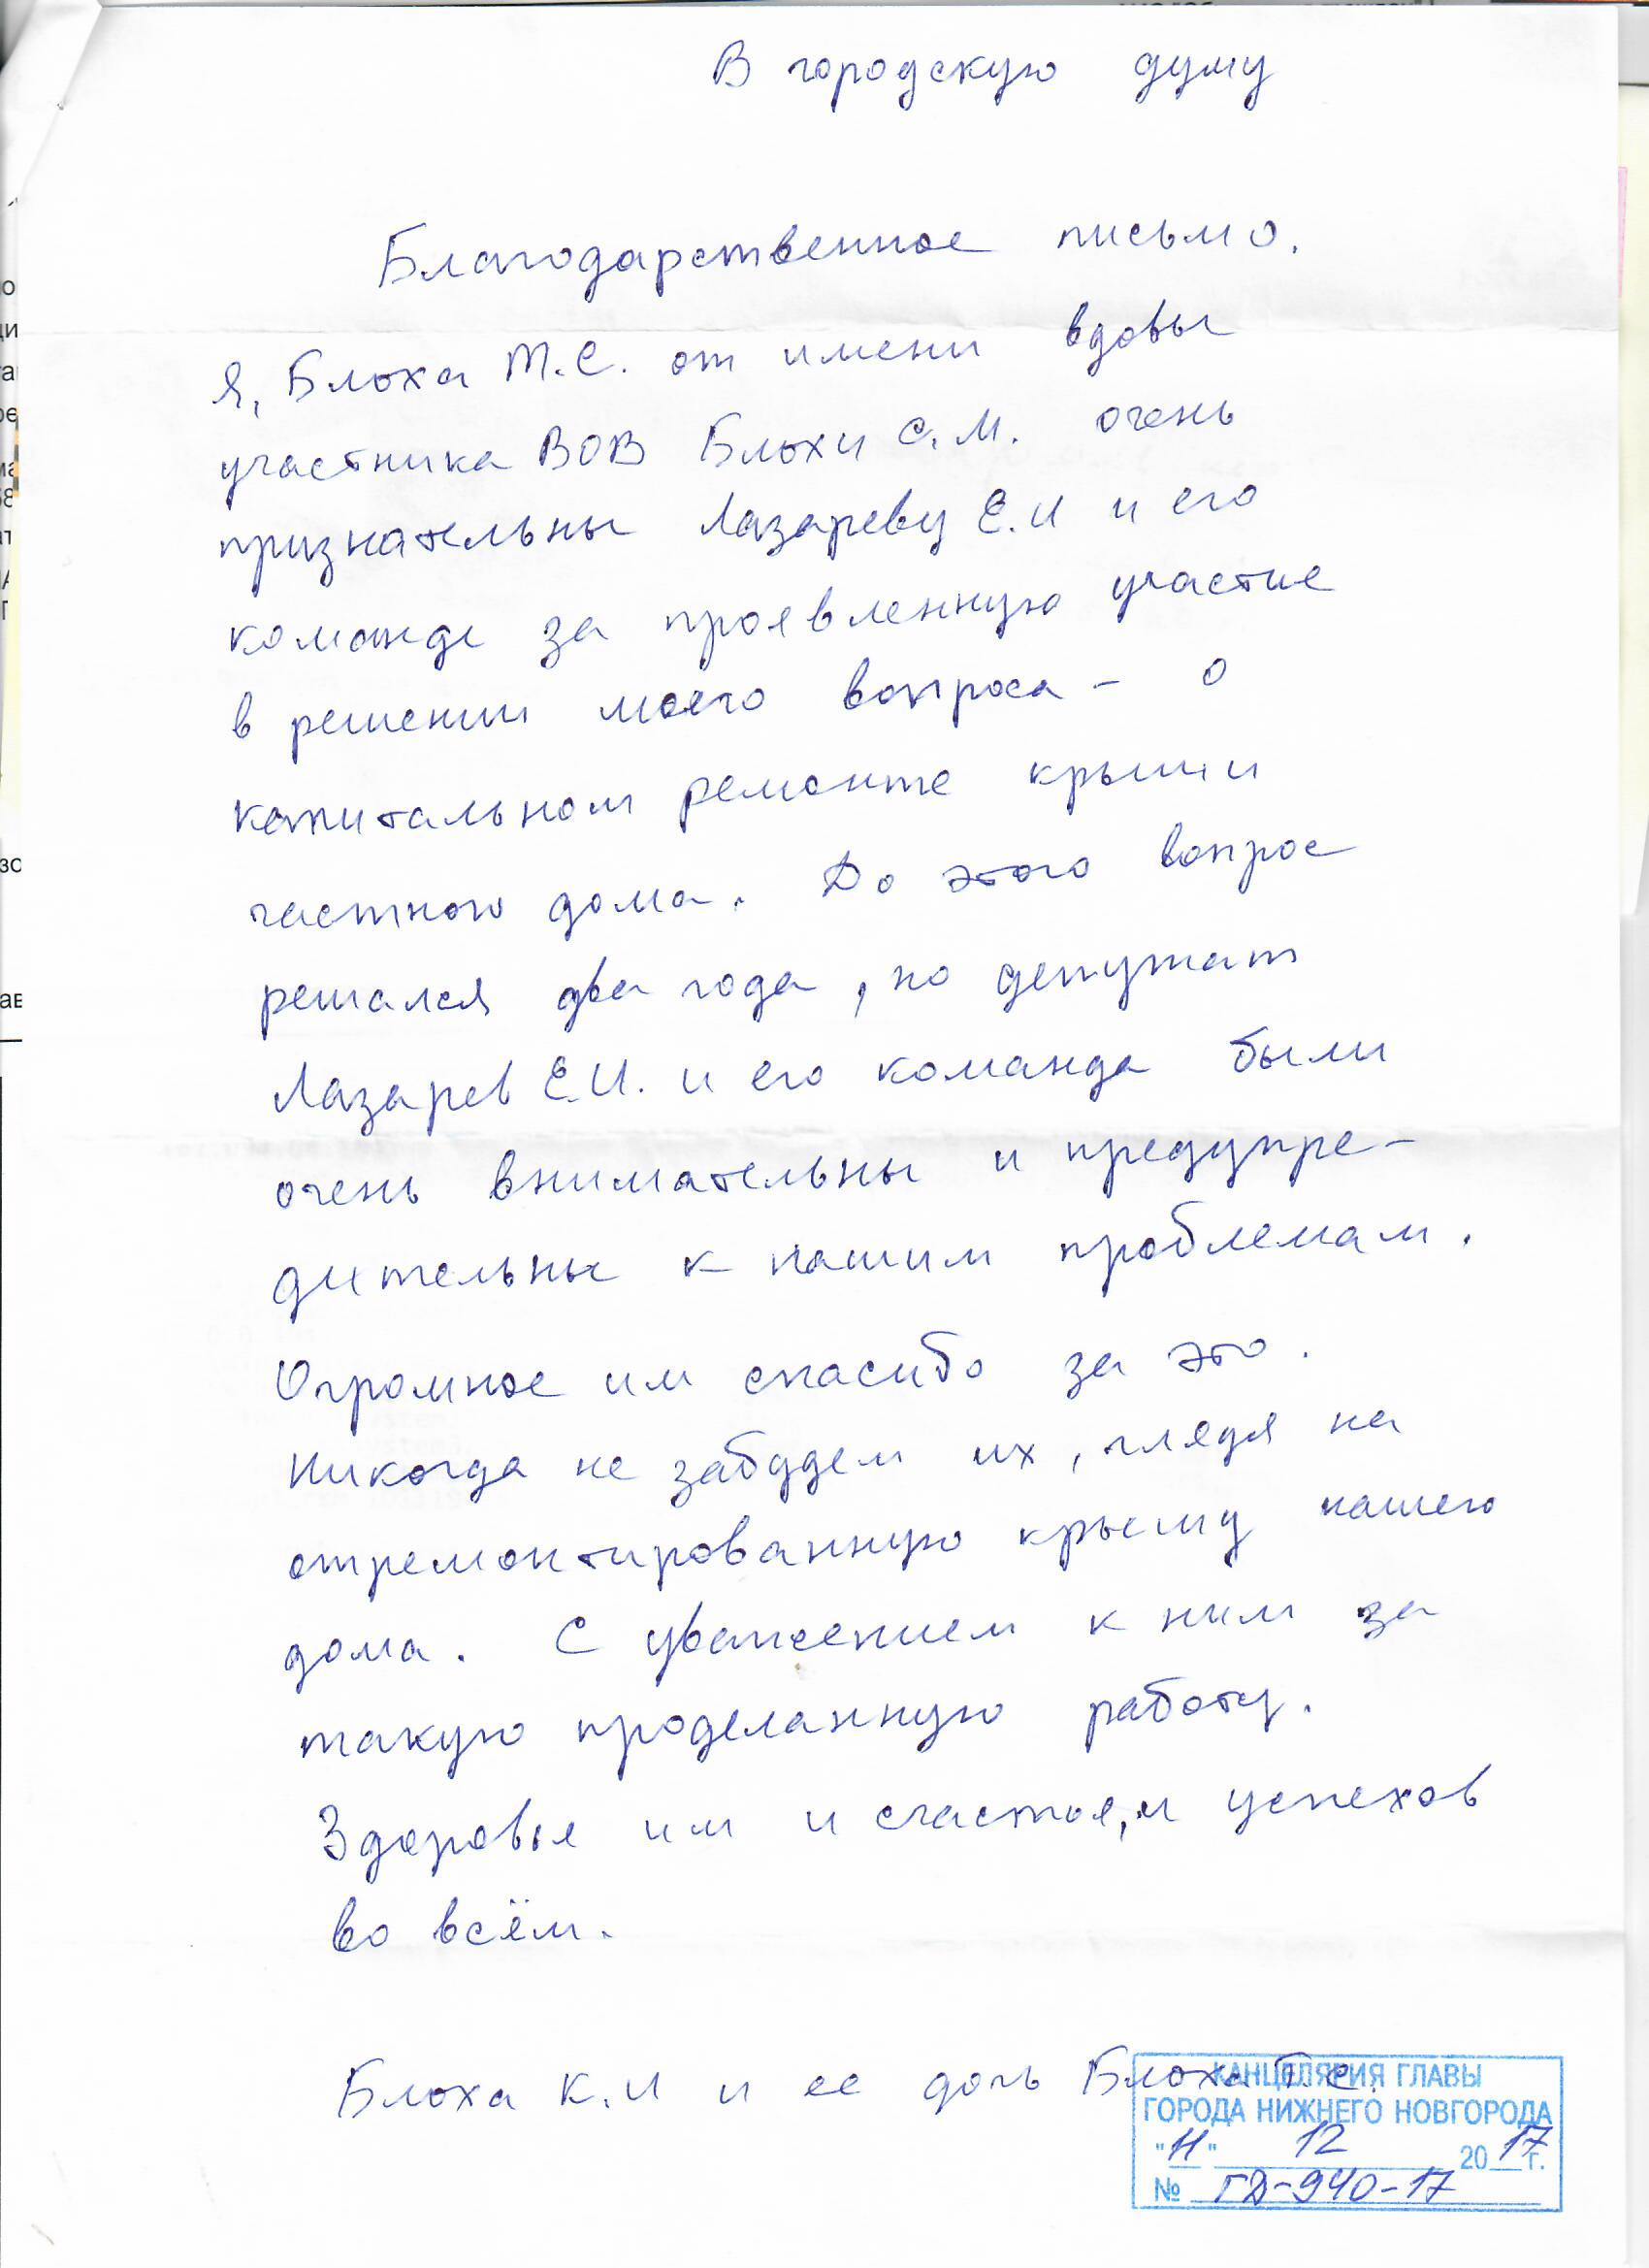 В городскую думу
Благодарственное письмо.
Я, Блоха Т.С. от имени вдовы
участника ВОВ Блохи С.М. очень
признательны Лазареву Е.И и его
команде за проявленную участие
в решении моего вопроса - о
капитальном ремонте крыши
частного дома. До этого вопрос
решался два года, но депутат
Лазарев Е.И. и его команда были
очень внимательны и предупре-
дительны к нашим проблемам.
Огромное им спасибо за это.
Никогда не забудем их, глядя на
отремонтированную крышу нашего
дома. С уважением к ним за
такую проделанную работу.
Здоровья им и счастья, и успехов
во всём.
Блоха К.И и ее дочь Блоха Т.С.
КАНЦЕЛЯРИЯ ГЛАВЫ
ГОРОДА НИЖНЕГО НОВГОРОДА
"11" 12 2017 г.
№ ГД-940-17